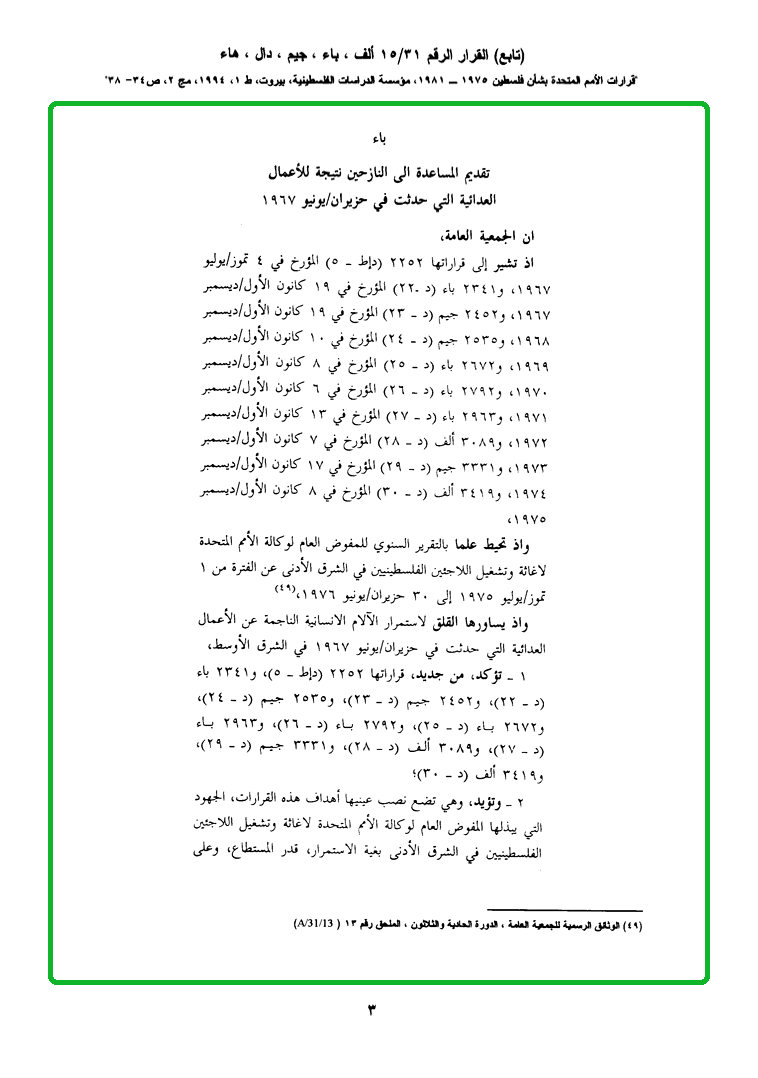 (تابع) القرار الرقم ١٥/٣١ ألف ، باء ، جيم ، دال ، هاء
"قرارات الأمم المتحدة بشأن فلسطين ١٩٧٥ ــ ١٩٨١، مؤسسة الدراسات الفلسطينية، بيروت، ط ١، ١٩٩٤، مج ٢، ص٣٤- ٣٨"
باء
تقديم المساعدة الى النازحين نتيجة للأعمال
العدائية التي حدثت في حزيران/يونيو ١٩٦٧
ان الجمعية العامة،
اذ تشير إلى قراراتها ٢٢٥٢ (دإط ـ ٥) المؤرخ في ٤ تموز/يوليو
١٩٦٧، و٢٣٤١ باء (د ـ٢٢) المؤرخ في ١٩ كانون الأول/ديسمبر
١٩٦٧، و٢٤٥٢ جيم (د ـ ٢٣) المؤرخ في ١٩ كانون الأول/ديسمبر
١٩٦٨، و٢٥٣٥ جيم (د ـ ٢٤) المؤرخ في ١٠ كانون الأول/ديسمبر
١٩٦٩، و٢٦٧٢ باء (د ـ ٢٥) المؤرخ في ٨ كانون الأول/ديسمبر
١٩٧٠، و٢٧٩٢ باء (د ـ ٢٦) المؤرخ في ٦ كانون الأول/ديسمبر
١٩٧١، و٢٩٦٣ باء (د ـ ٢٧) المؤرخ في ١٣ كانون الأول/ديسمبر
١٩٧٢، و٣٠٨٩ ألف (د ـ ٢٨) المؤرخ في ٧ كانون الأول/ديسمبر
١٩٧٣، و٣٣٣١ جيم (د ـ ٢٩) المؤرخ في ١٧ كانون الأول/ديسمبر
١٩٧٤، و٣٤١٩ ألف (د ـ ٣٠) المؤرخ في ٨ كانون الأول/ديسمبر
١٩٧٥،
واذ تحيط علما بالتقرير السنوي للمفوض العام لوكالة الأمم المتحدة
لاغاثة وتشغيل اللاجئين الفلسطينيين في الشرق الأدنى عن الفترة من ١
تموز/يوليو ١٩٧٥ إلى ٣٠ حزيران/يونيو ١٩٧٦،(٤٩)
واذ يساورها القلق لاستمرار الآلام الانسانية الناجمة عن الأعمال
العدائية التي حدثت في حزيران/يونيو ١٩٦٧ في الشرق الأوسط،
١ ـ تؤكد، من جديد، قراراتها ٢٢٥٢ (دإط ـ ٥)، و٢٣٤١ باء
(د ـ ٢٢)، و٢٤٥٢ جيم (د ـ ٢٣)، و٢٥٣٥ جيم (د ـ ٢٤)،
و٢٦٧٢ باء (د ـ ٢٥)، و٢٧٩٢ باء (د ـ ٢٦)، و٢٩٦٣ باء
(د ـ ٢٧)، و٣٠٨٩ ألف (د ـ ٢٨)، و٣٣٣١ جيم (د ـ ٢٩)،
و٣٤١٩ ألف (د ـ ٣٠)؛
٢ ـ وتؤيد، وهي تضع نصب عينيها أهداف هذه القرارات، الجهود
التي يبذلها المفوض العام لوكالة الأمم المتحدة لاغاثة وتشغيل اللاجئين
الفلسطينيين في الشرق الأدنى بغية الاستمرار، قدر المستطاع، وعلى
(٤٩) الوثائق الرسمية للجمعية العامة ، الدورة الحادية والثلاثون ، الملحق رقم ١٣ ( A/31/13)
٣